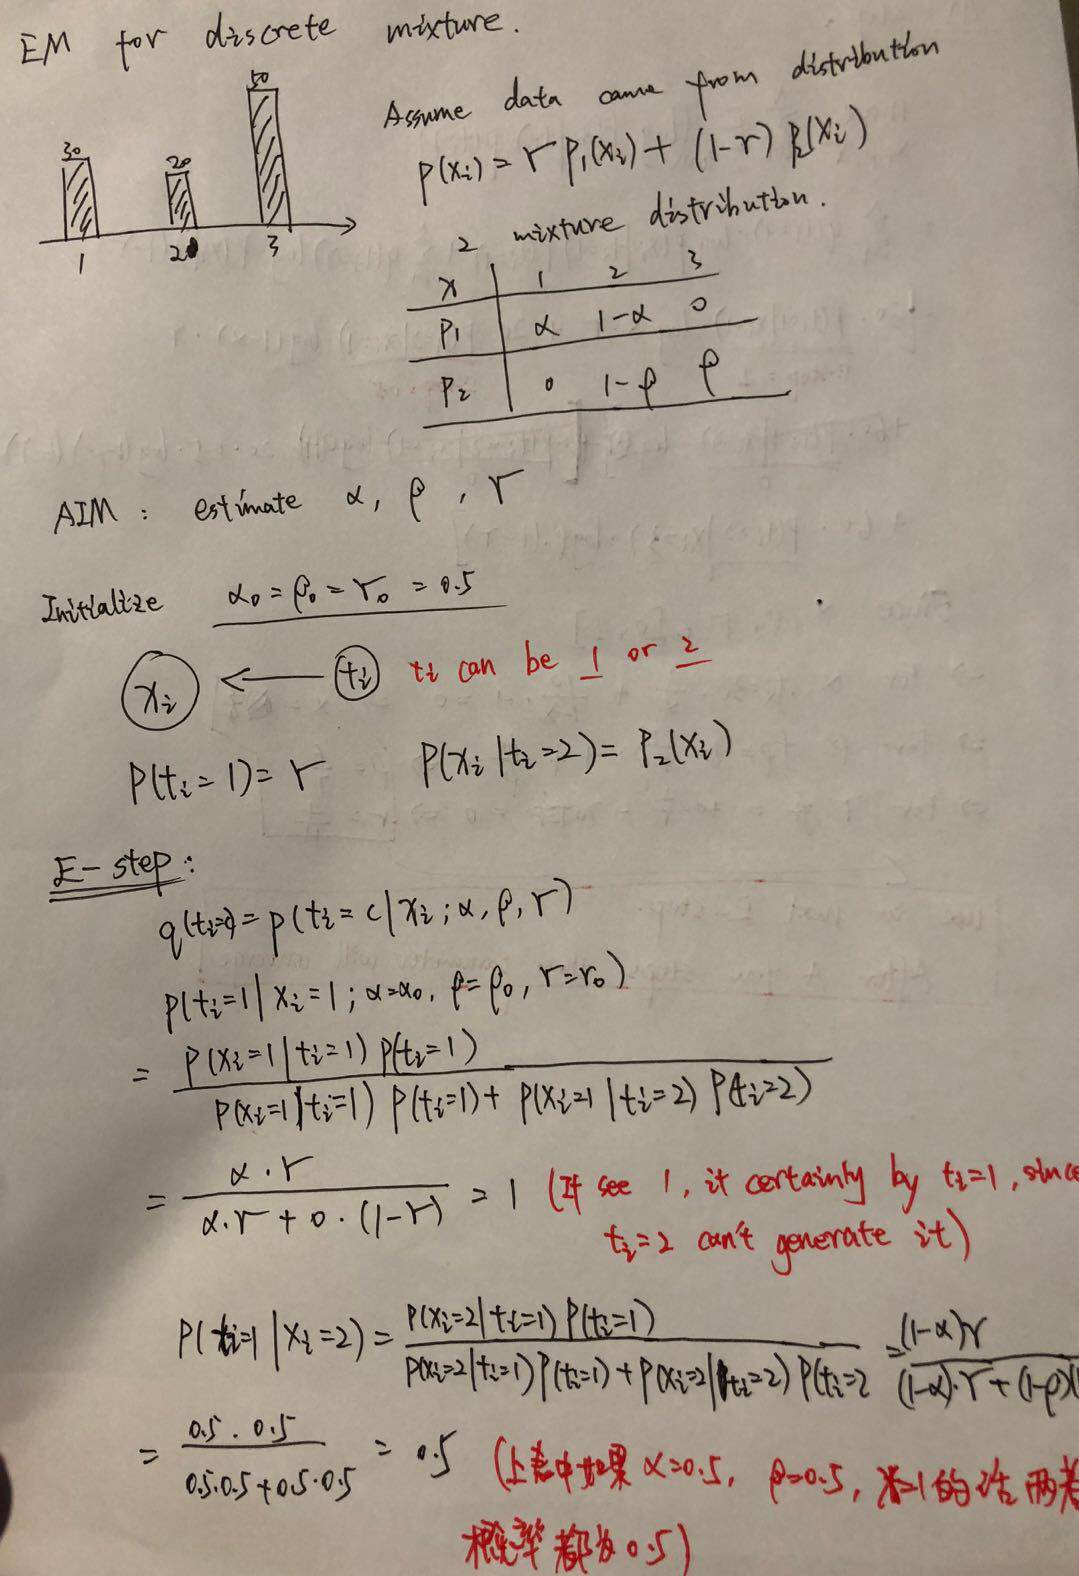 EM for discrete mixture.
30 20 50
1 2 3
Assume data came from distribution
p(xi) = r p1(xi) + (1-r) p2(xi)
2 mixture distribution.
x 1 2 3
P1 α 1-α 0
P2 0 1-ρ ρ
AIM : estimate α, ρ , r
Initialize α0 = ρ0 = r0 = 0.5
xi ← ti ti can be 1 or 2
P(ti = 1) = r P(xi | ti = 2) = P2(xi)
E-step:
q(ti=c) = p(ti = c | xi ; α, ρ, r)
p(ti=1 | xi=1 ; α=α0, ρ=ρ0, r=r0)
= P(xi=1 | ti=1) p(ti=1)
P(xi=1 | ti=1) P(ti=1) + P(xi=1 | ti=2) P(ti=2)
= α · r / α·r + 0 · (1-r) = 1 (If see 1, it certainly by ti=1, since
ti=2 can't generate it)
P(ti=1 | xi=2) = P(xi=2 | ti=1) P(ti=1) / P(xi=2 | ti=1) P(ti=1) + P(xi=2 | ti=2) P(ti=2 = (1-α)r / (1-α)·r + (1-ρ)(
= 0.5 · 0.5 / 0.5·0.5 + 0.5·0.5 = 0.5 (上表中如果 α=0.5, ρ=0.5, 的话 两者
概率都为 0.5)